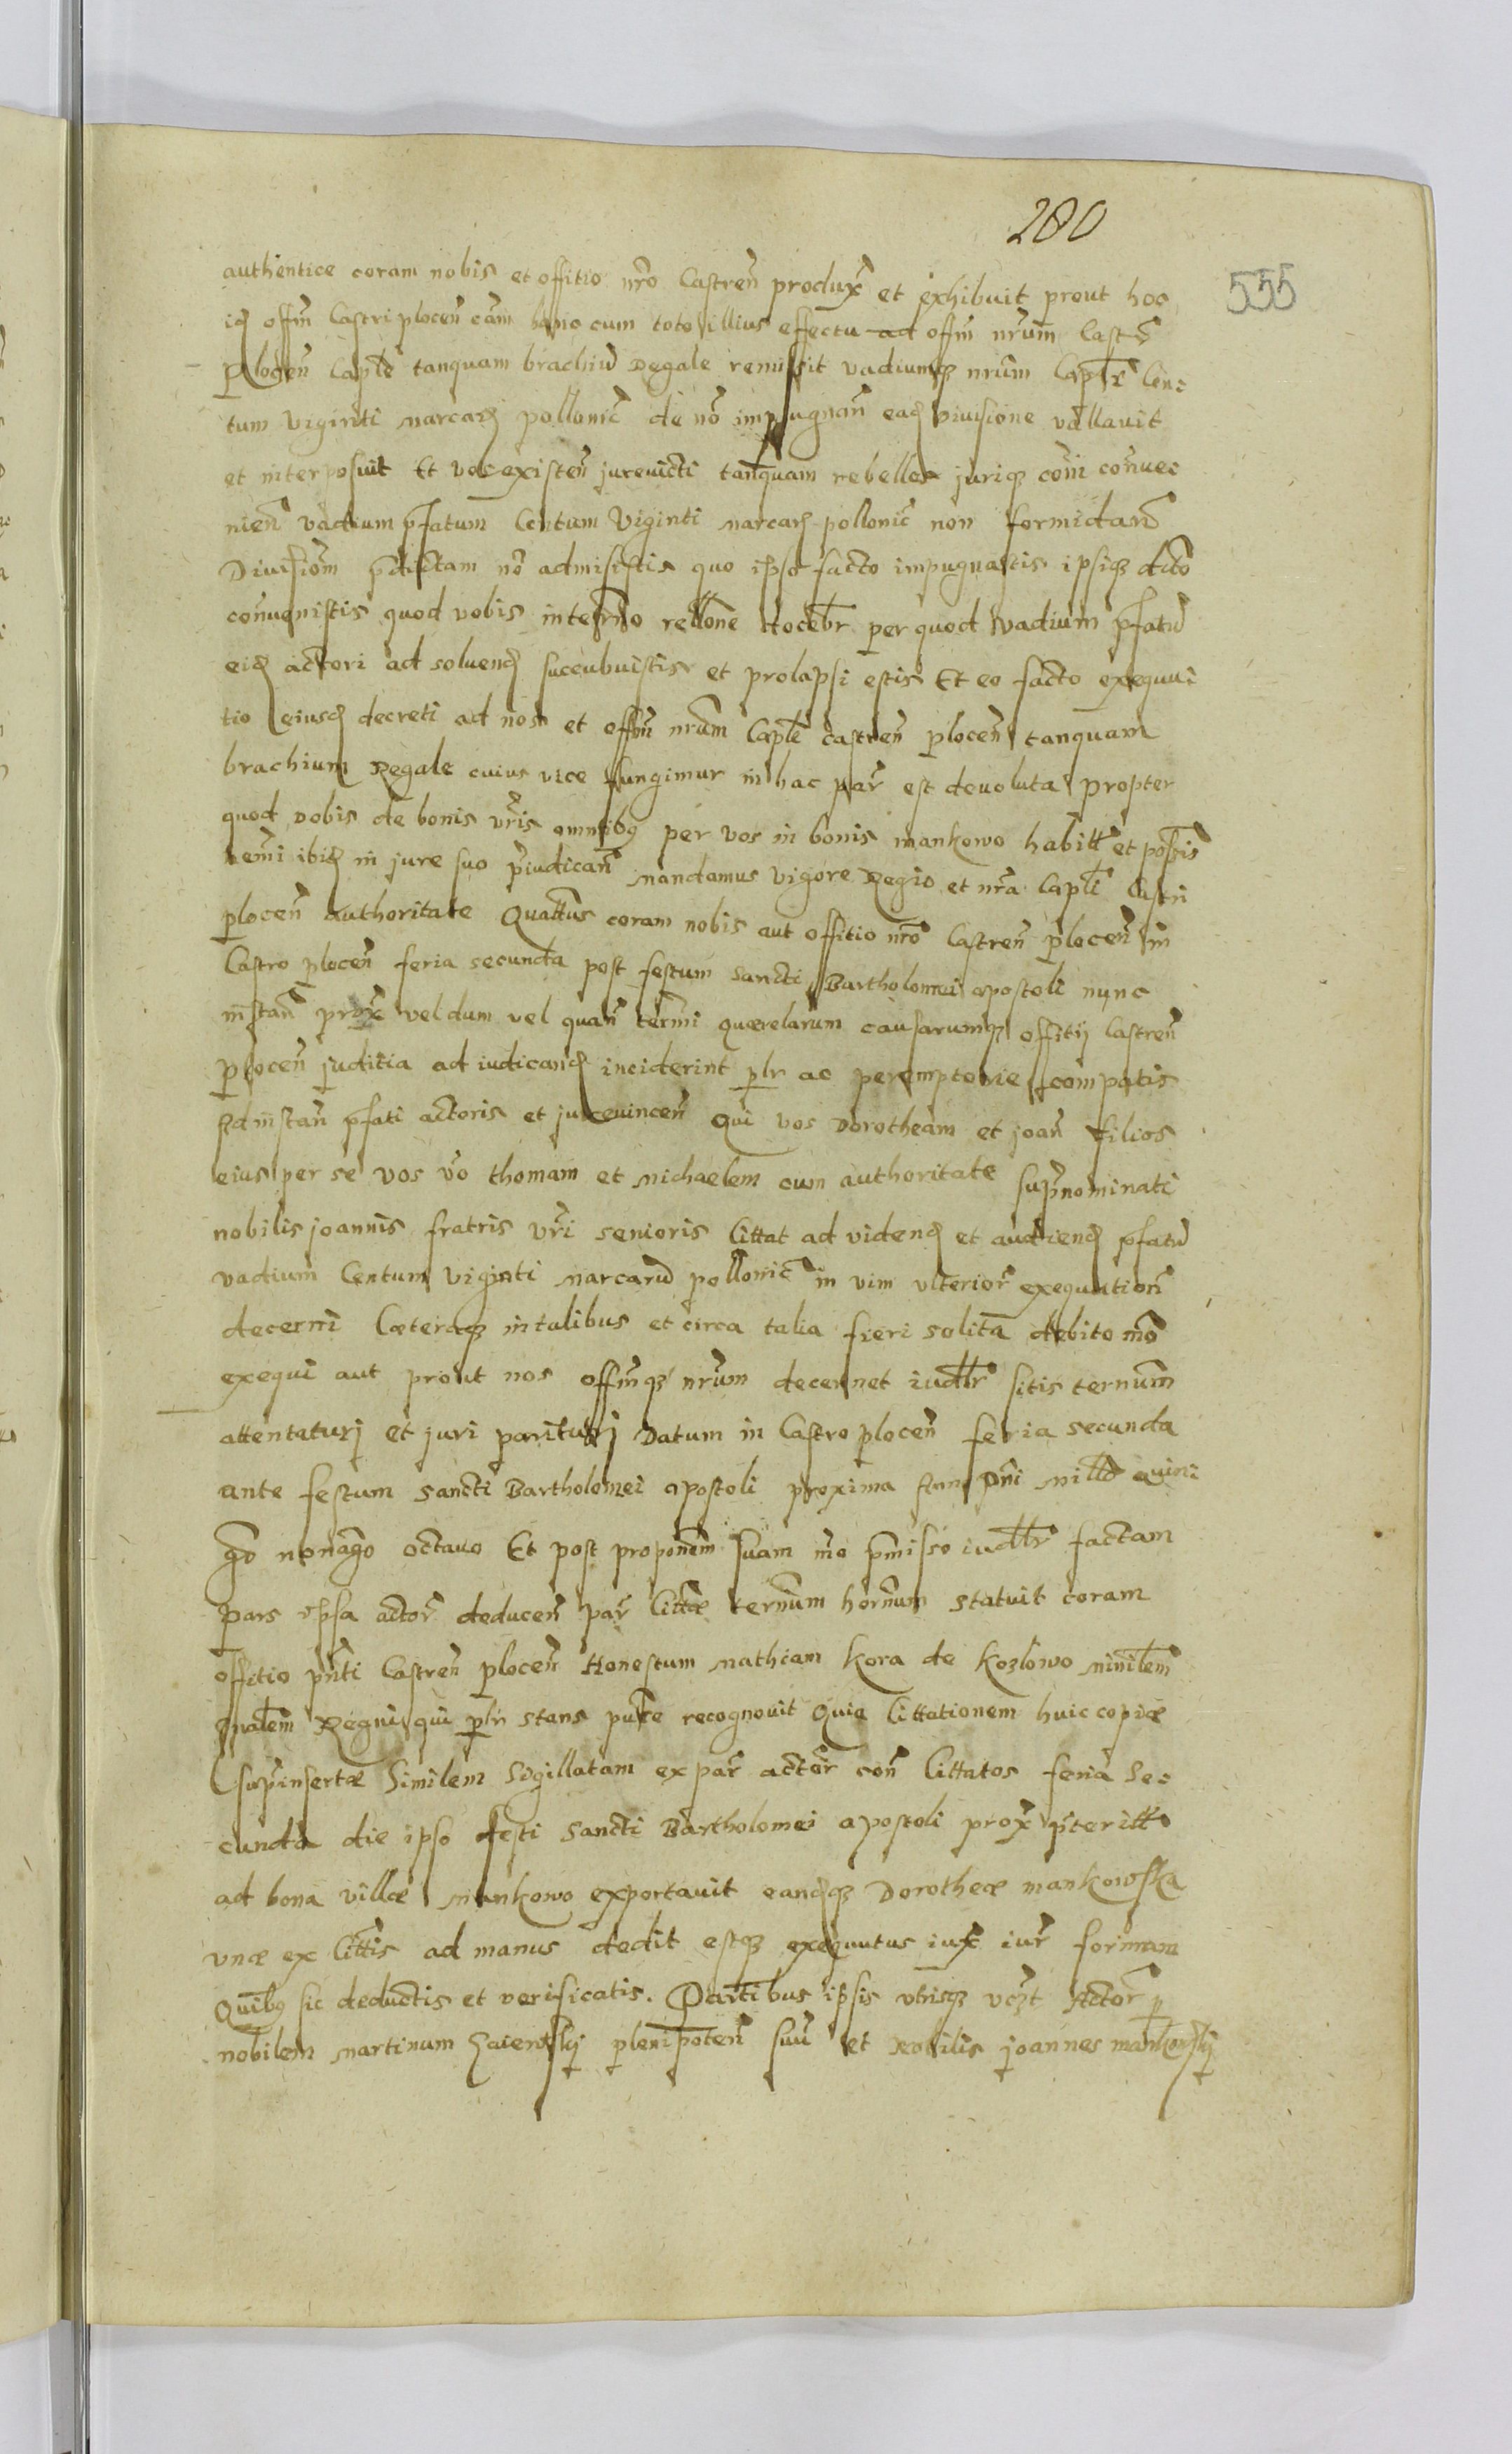 280
555
authentice coram nobis et offitio nr̃o Castreñ produx̃ et exhibuit prout hoc
id offm̃ Castri plocen̄ cam̄ hanc cum toto illius effectu ad offm̄ nr̄um Castr̄
Plocen̄ Capl̄e tanquam brachiū Regale remissit vadiumq nr̄um Capl̄e Cen:
tum Viginti marcarꝫ pollonic̄ de nō impugnan̄ eadꝫ divisione vallavit
et interposuit Et vos existen̄ jurevicti tanquam rebelles juriq cōni conve:
nien̄ vadium p̄fatum Centum Viginti marcarꝫ pollonic̄ non formidan̄
Divisiom̄ p̄dictam nō admisistis quo ipso facto impugnastis ipsiq dicto
convenistis quod vobis in termo rellone docebr̄ per quod vadium p̄fatū
eidꝫ actori ad solvendꝫ succubuistis et prolapsi estis Et eo facto exequu:
tio eiusdꝫ decreti ad nos et offm̄ nr̄um Caple castren̄ plocen̄ tanquam
brachium Regale cuius vice fungimur in hac par̄ est devoluta propter
quod vobis de bonis vr̄is omnibꝫ per vos in bonis mankowo habitt et possis
nemi ibidꝫ in jure suo p̄iudican̄ mandamus vigore Regio et nr̄a Caplī Castri
plocen̄ authoritate Quattus coram nobis aut offitio nr̄o Castren̄ plocen̄ in
Castro plocen̄ feria secunda post festum Sancti Bartholomei apostoli nunc
instan̄ prox̄ vel dum vel quan̄ term̄i quærelarum causarumq offitij Castren̄
plocen̄ juditia ad iudicandꝫ inciderint plr̄ ac peremptorie compatis
Ad instan̄ p̄fati actoris et jurevincen̄ Qui vos Dorotheam et joan̄ filios
eius per se vos v̄o thomam et michaelem cum authoritate supr̄nominati
nobilis joannis fratris vr̄i senioris Cittat ad videndꝫ et audiendꝫ p̄fatū
vadium Centum viginti marcarū pollonic̄ in vim ulterior̄ exequution̄
decerni Cæteraq in talibus et circa talia fieri solita debito mō
exequi aut prout nos offm̄q nr̄um decernet iudlr̄ sitis termum
attentaturj et juri parituri Datum in Castro plocen̄ feria secunda
ante festum Sancti Bartholomei apostoli proxima Ann Dn̄i millō quin:
gō nonagō octavo Et post proponem̄ suam mō p̄misso iudlr̄ factam
Pars ipsa actor̄ deducen̄ par̄ Cittæ ternum hornum statuit coram
offitio pn̄ti Castren̄ plocen̄ Honestum mathiam kora de kozlowo minilem̄
Gnalem̄ Regni qui plr̄ stans pure recognovit Quia Cittationem huic copiæ
supr̄insertæ Similem Sigillatam ex par̄ actor̄ con̄ Cittatos feria Se:
cunda die ipso festi Sancti Bartholomei apostoli prox̄ p̄teritt
ad bona villæ mankowo exportavit eandꝫq Dorotheæ mankowska
unæ ex Cittis ad manus dedit estq exequutus iux̄ iur̄ formam
Quibꝫ sic deductis et verificatis. Partibus ipsis utrisq vczt Actor̄ p
nobilem martinum plenipoten̄ suū et Nobilis joannes mankowskij